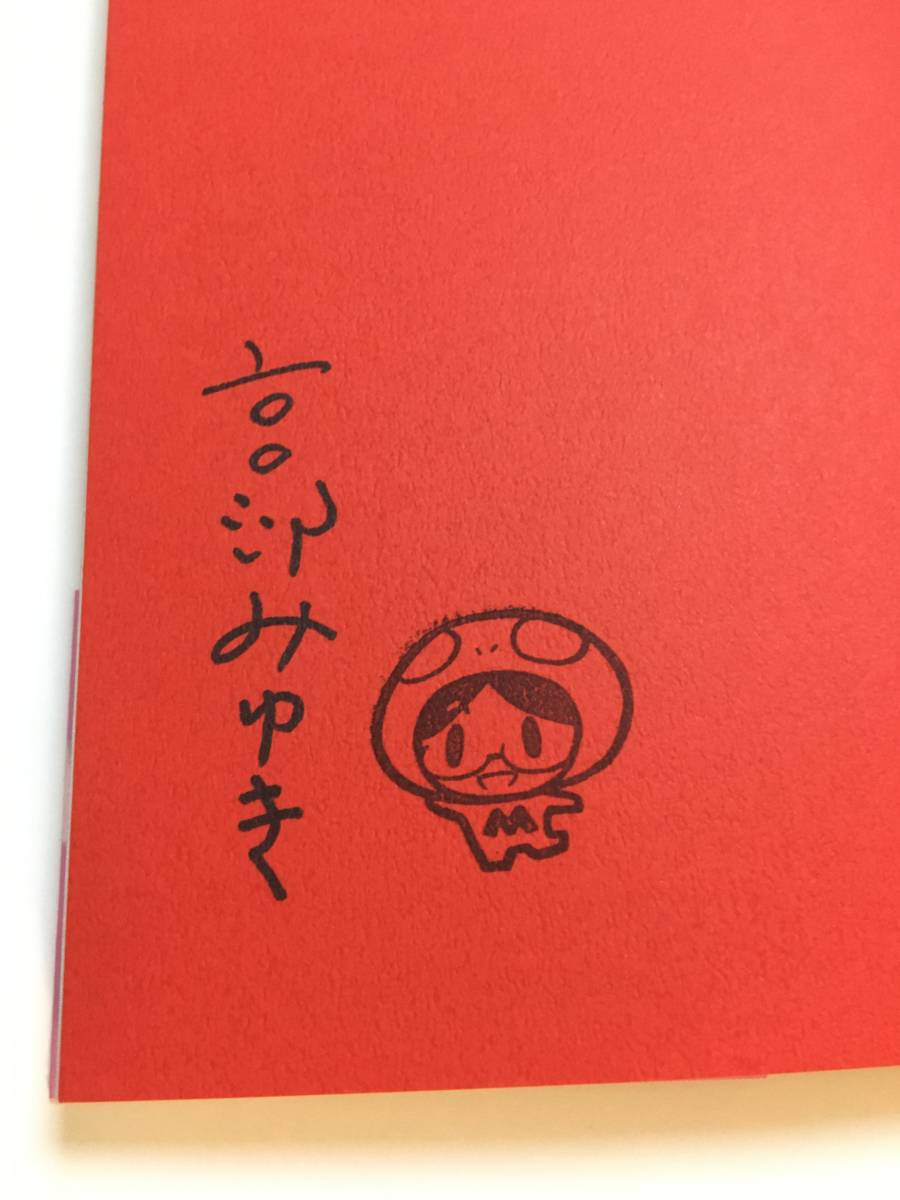 宮部みゆき
M